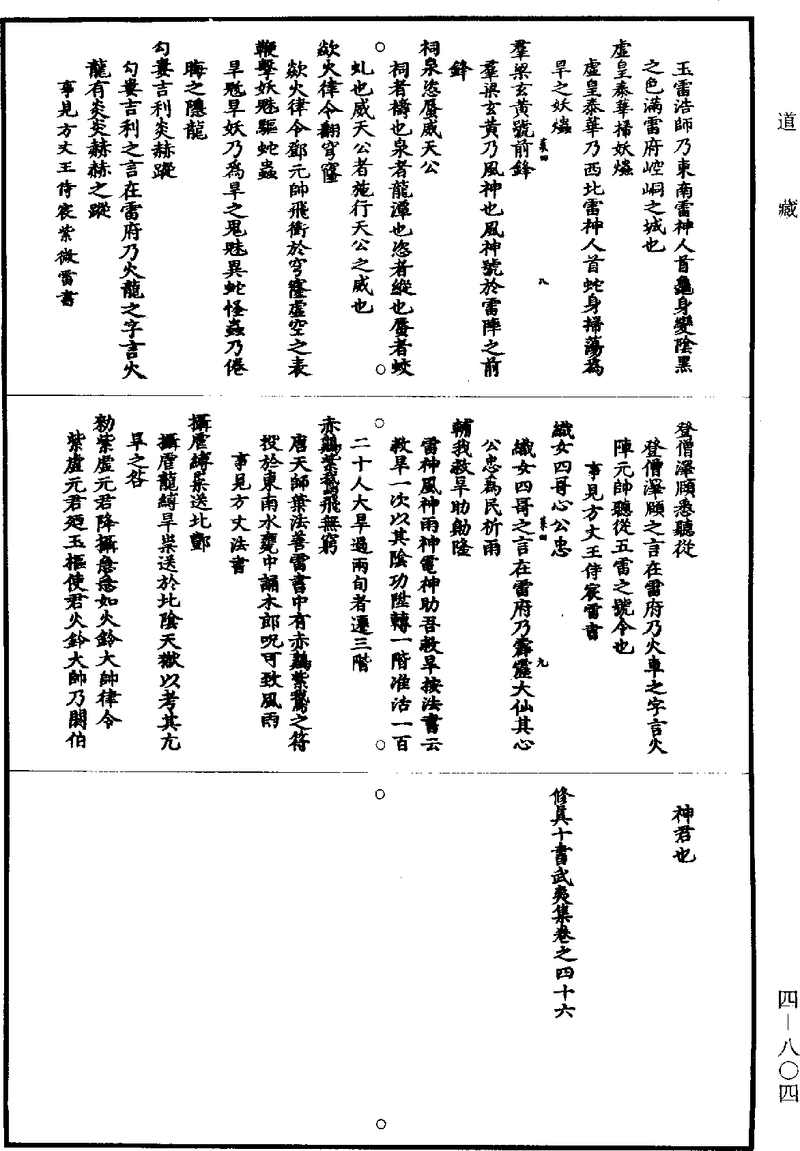 道藏
玉雷浩師乃東南雷神人首龜身變陰黑
之色滿雷府崆峒之城也
虛皇泰華掃妖爞
虛皇泰華乃西北雷神人首蛇身掃蕩為
旱之妖爞
羣梁玄黃號前鋒
羣梁玄黃乃風神也風神號於雷陣之前
鋒
祠泉恣蜃威天公
祠者禱也泉者龍潭也恣者縱也蜃者蛟
虬也威天公者施行天公之威也
欻火律令翻穹窿
欻火律令鄧元帥飛衝於穹窿虛空之表
鞭擊妖魃驅蛇蟲
旱魃旱妖乃為旱之鬼魅異蛇怪蟲乃倦
晦之隱龍
勾婁吉利炎赫蹤
勾婁吉利之言在雷府乃火龍之字言火
龍有炎炎赫赫之蹤
事見方丈王侍宸紫微雷書
登僧澤頤悉聽從
登僧澤頤之言在雷府乃火車之字言火
陣元帥聽從五雷之號令也
事見方丈王侍宸雷書
織女四哥心公忠
織女四哥之言在雷府乃霹靂大仙其心
公忠為民祈雨
輔我救旱助勛隆
雷神風神雨神電神助吾救旱按法書云
救旱一次以其陰功陞轉一階准活一百
二十人大旱過兩旬者遷三階
赤鷄紫鵞飛無窮
唐天師葉法善雷書中有赤鷄紫鵞之符
投於東南水甕中誦木郎呪可致風雨
事見方丈法書
攝虐縛祟送北酆
攝虐龍縛旱祟送於北陰天獄以考其亢
旱之咎
勑紫虛元君降攝急急如火鈴大帥律令
紫虛元君廼玉樞使君火鈴大帥乃閼伯
神君也
修真十書武夷集卷之四十六
四一八〇四